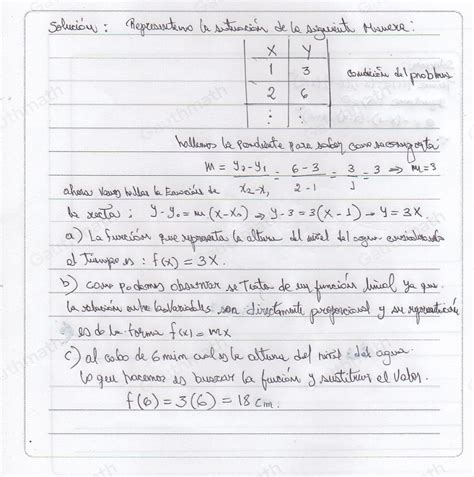 Solución : Representemo la situación de la siguiente Manera:
X Y
1 3 condición del problema
2 6
⋮ ⋮
hallemos la pendiente para saber como se comporta
m = y₂-y₁ / x₂-x₁ = 6-3 / 2-1 = 3 / 1 = 3 ⇒ m=3
ahora vamos hallar la Ecuación de
la recta ; y-y₀ = m(x-x₀) ⇒ y-3 = 3(x-1) → y=3x
a) La función que representa la altura del nivel del agua
al tiempo es : f(x) = 3x.
b) como podemos observar se trata de un función lineal ya que
la relación entre las variables son directamente proporcional y su representación
es de la forma f(x) = mx
c) al cabo de 6 min cual es la altura del nivel del agua.
lo que hacemos es buscar la función y sustituir el valor.
f(6) = 3(6) = 18 cm.
Gauthmath